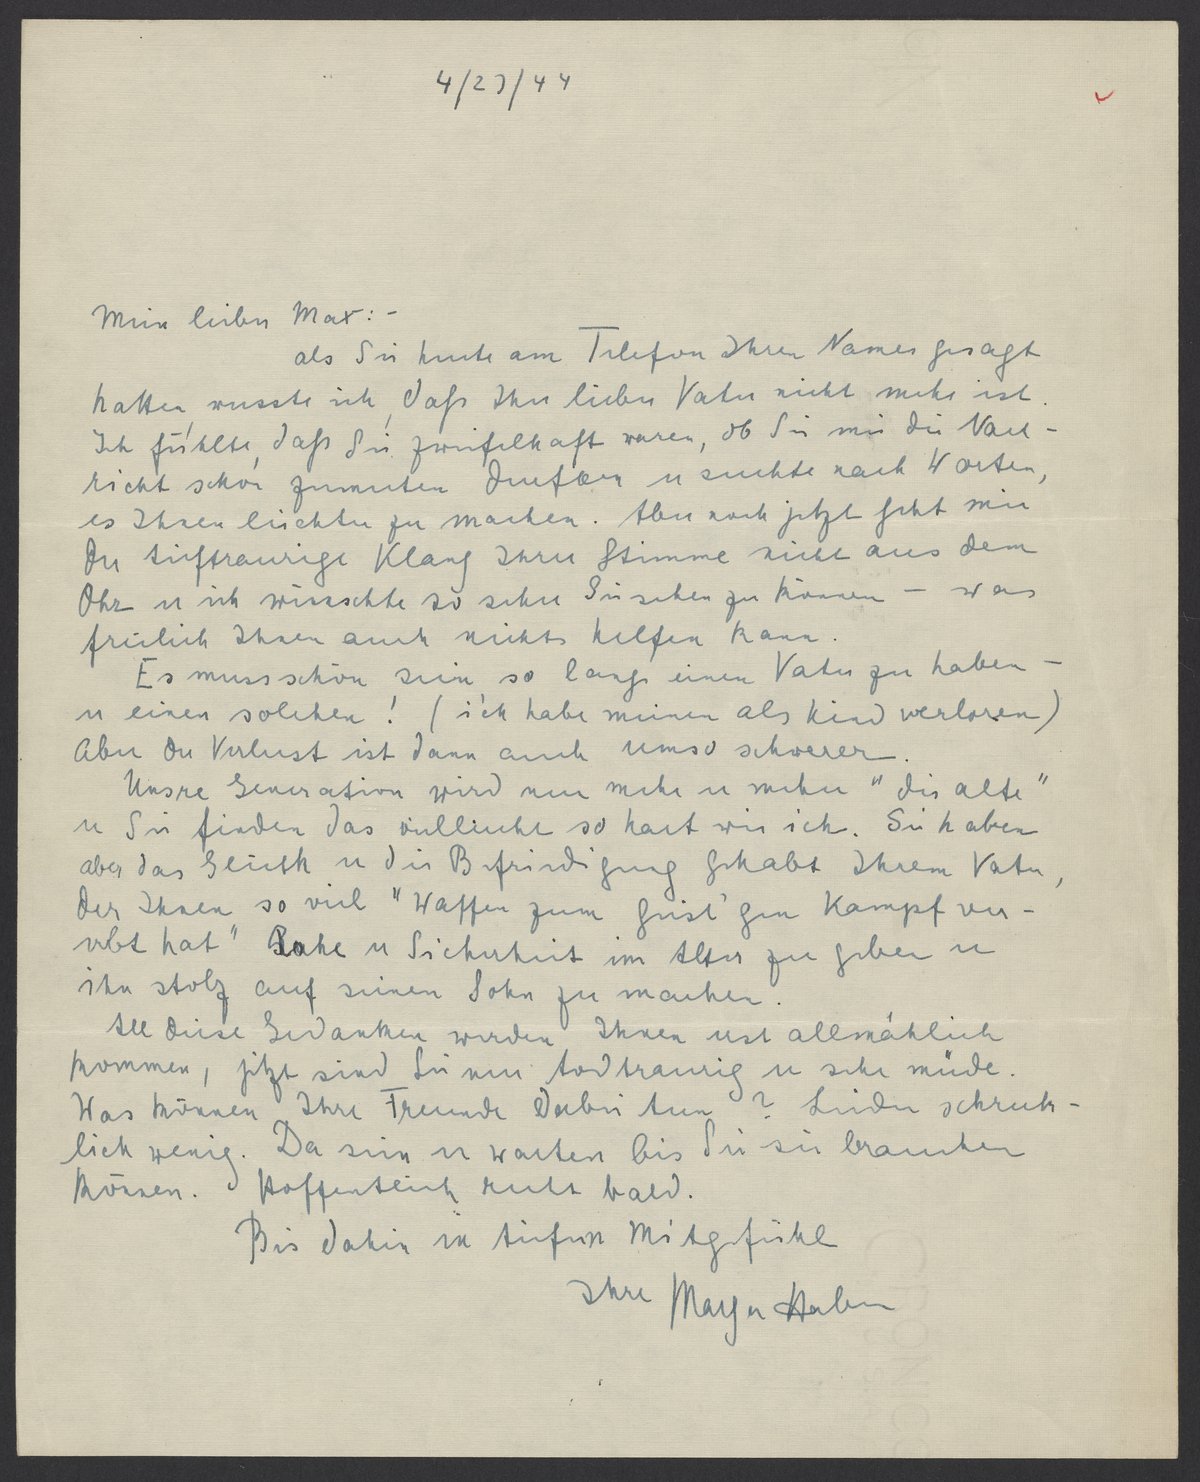 4/23/44
Mein lieber Max: -
als Sie heute am Telefon Ihren Namen gesagt
hatten, wusste ich, daß Ihr lieber Vater nicht mehr ist.
Ich fühlte, daß Sie zweifelhaft waren, ob Sie mir die Nach-
richt schon zumuten duerfen u suchte nach Worten,
es Ihnen leichter zu machen. Aber noch jetzt geht mir
der tieftraurige Klang Ihrer Stimme nicht aus dem
Ohr u ich wünschte so sehr Sie sehen zu können - was
freilich Ihnen auch nichts helfen kann.
Es muss schön sein so lange einen Vater zu haben -
u einen solchen! (ich habe meinen als Kind verloren)
Aber der Verlust ist dann auch umso schwerer.
Unsre Generation wird nun mehr u mehr "die alte"
u Sie finden das vielleicht so hart wie ich. Sie haben
aber das Glück u die Befriedigung gehabt Ihrem Vater,
der Ihnen so viel "Waffen zum geist'gen Kampf ver-
erbt hat" Ruhe u Sicherheit im Alter zu geben u
ihn stolz auf seinen Sohn zu machen.
All diese Gedanken werden Ihnen erst allmählich
kommen, jetzt sind Sie nur todtraurig u sehr müde.
Was können Ihre Freunde dabei tun? Leider schreck-
lich wenig. Da sein u warten bis Sie sie brauchen
können. Hoffentlich recht bald.
Bis dahin in tiefem Mitgefühl
Ihre